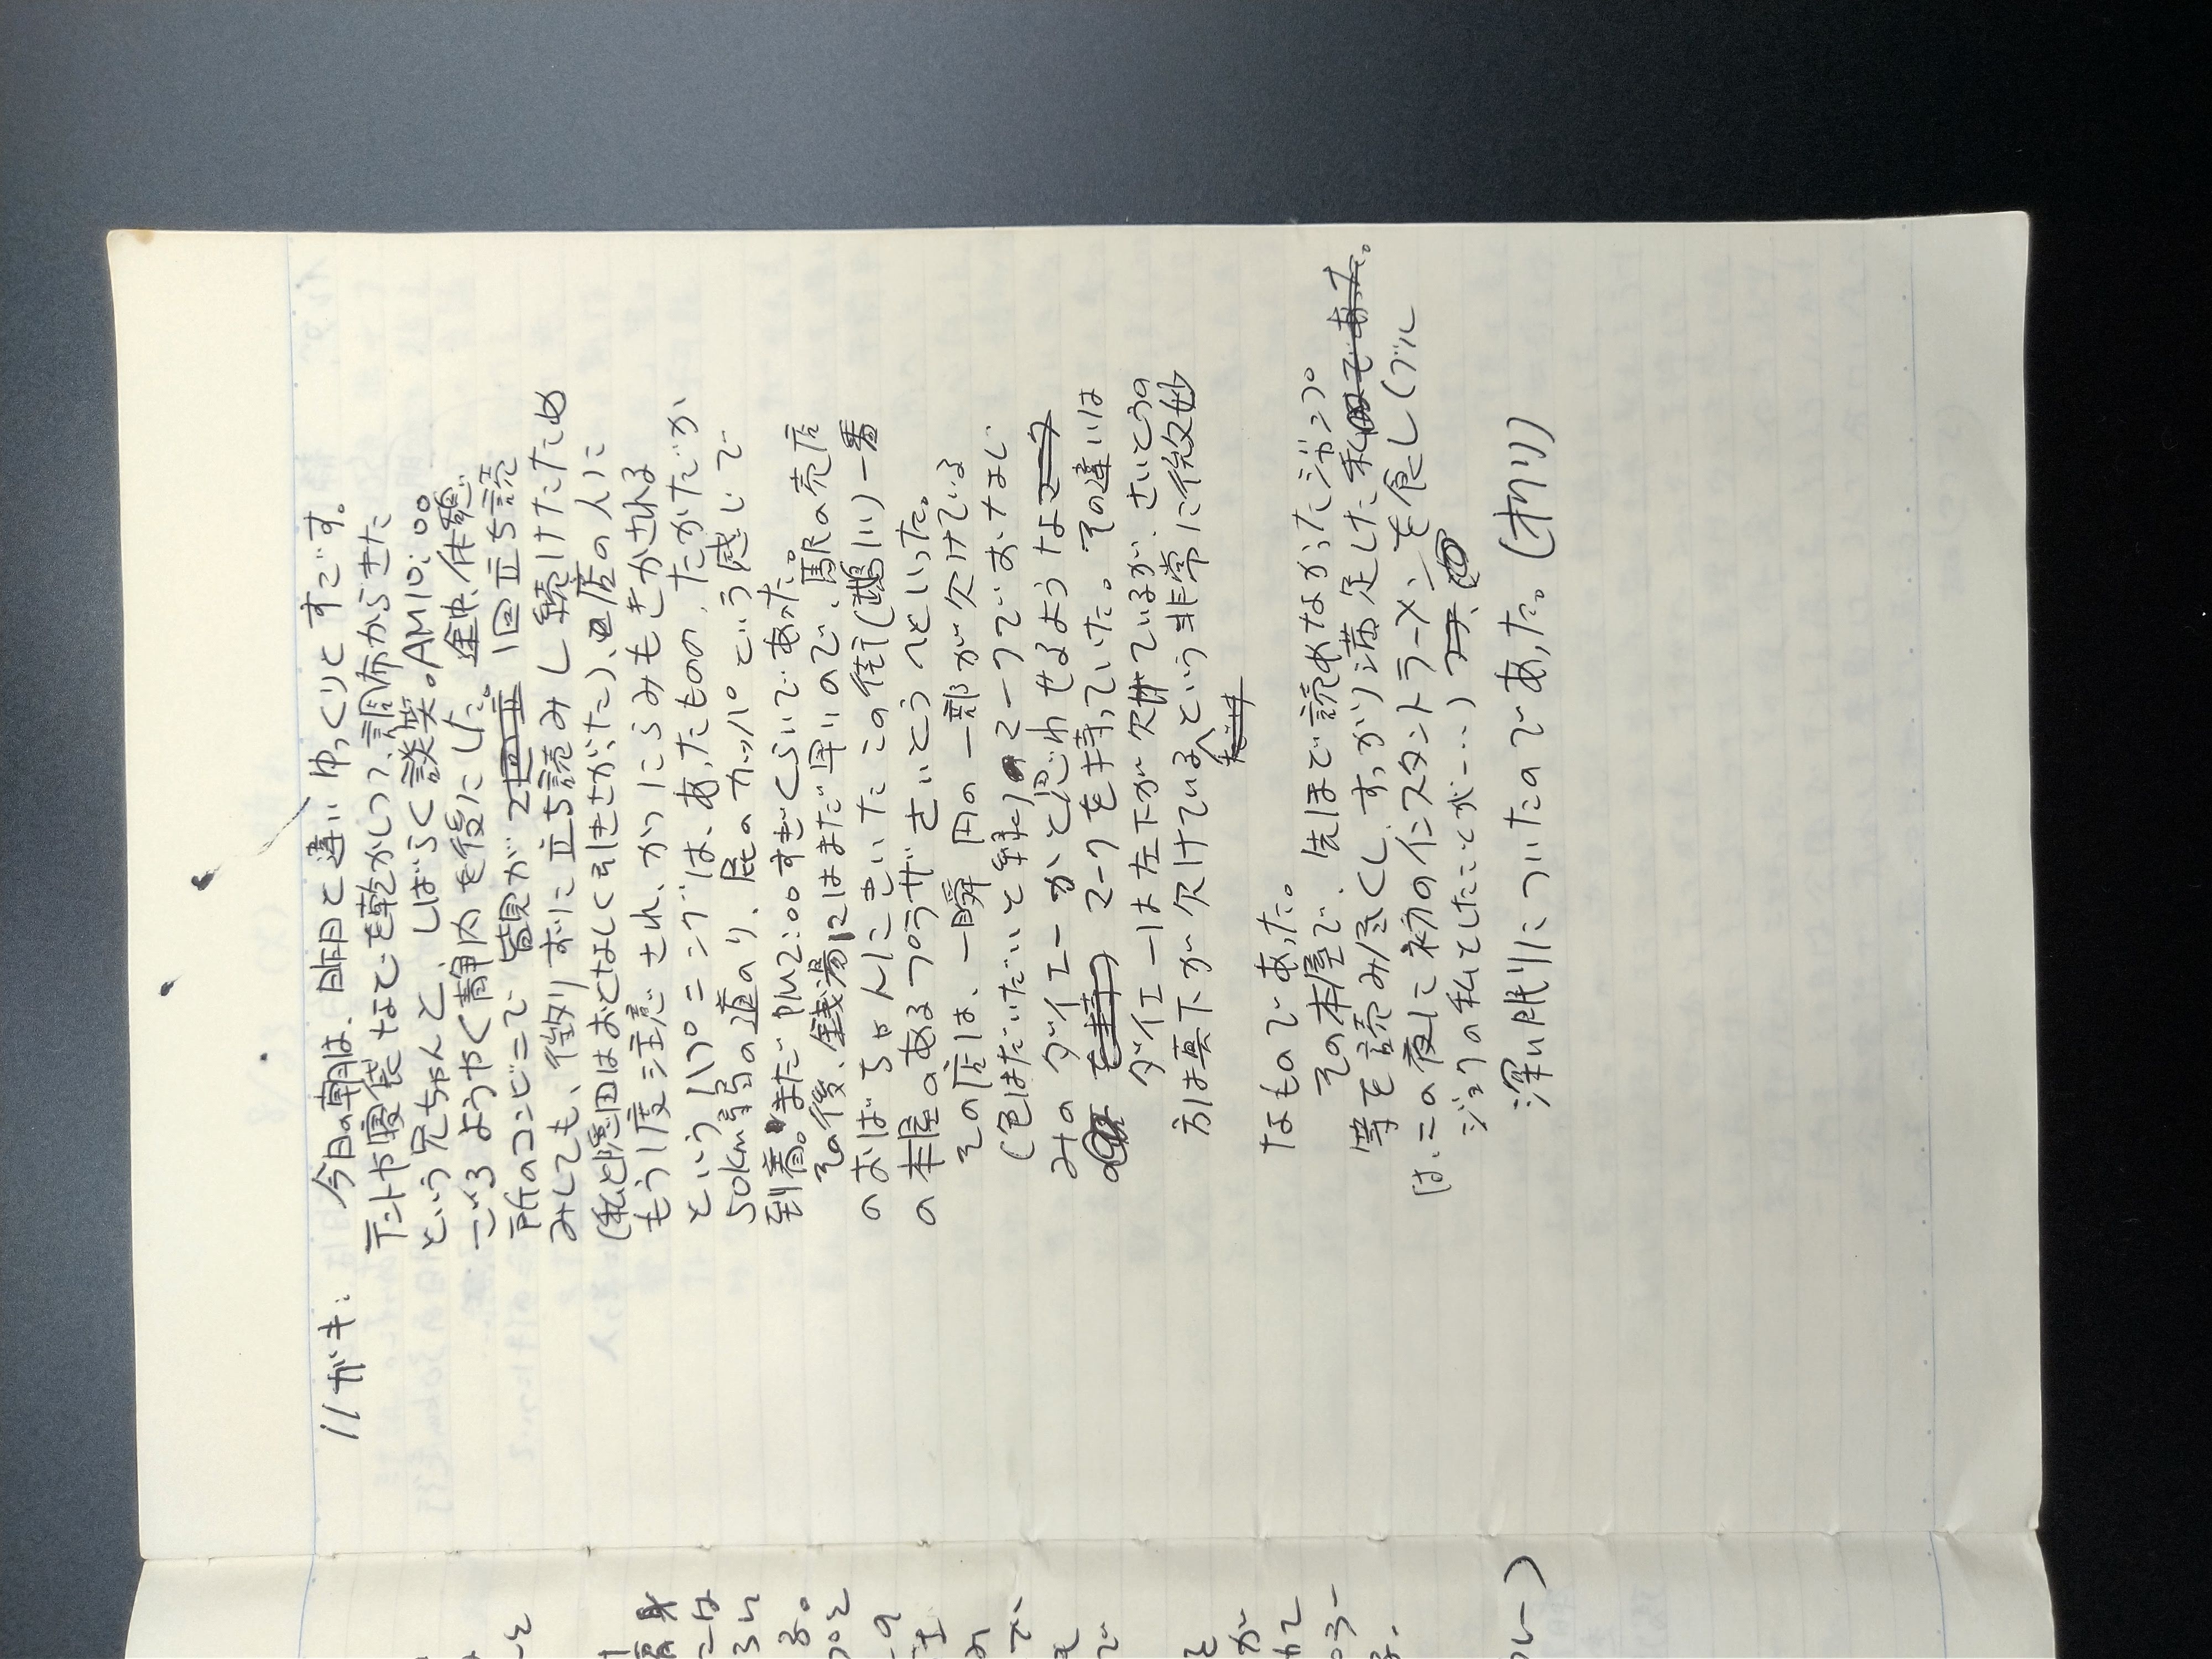 ハガキ: 今日の朝は、昨日と違いゆっくりとすごす。
テントや寝袋なども乾かしつつ、調布からきた
という兄ちゃんと、しばらく談笑。AM10:00
ごろようやく静内を後にした。途中、休憩
所のコンビニで皆見が2回立 1回立ち読
みしても、懲りずに立ち読みし続けたため
(私と隠田はおとなしく引きさがった)、店の人に
もう1度注意され、かつにらみもきかされる
というハプニングは、あったものの、たかだか
50km弱の道のり、屁のカッパという感じで
到着。まだPM2:00すぎぐらいであった。
その後、銭湯はまだ早いので、駅の売店
のおばちゃんにきいたこの街(鵡川)一番
の本屋のあるプラザさいとうへといった。
その店は、一瞬円の一部が欠けている
(色はだいだいと緑)のマークでおなじ
みのダイエーかと思わせるようなマーク
を持 マークを持っていた。その違いは
ダイエーは左下が欠けているが、さいとうの
方は真下が欠けているという非常に微妙
なものであった。
その本屋で、先ほど読めなかったジャンプ
等を読み尽くし、すっかり満足した私であった。
は、この夜に初のインスタントラーメンを食し(ブル
ジョワの私としたことが…)
深い眠りについたのであった。(オワリ)